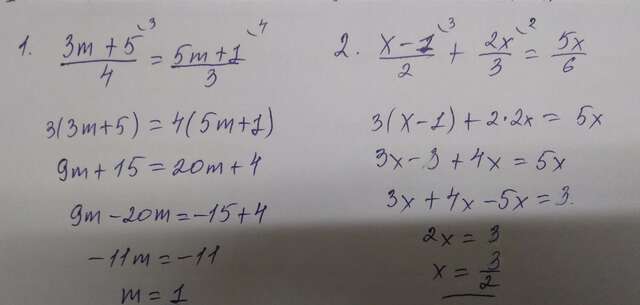 1. (3m + 5)/4 \3 = (5m + 1)/3 \4
3(3m+5) = 4(5m+1)
9m + 15 = 20m + 4
9m - 20m = -15 + 4
-11m = -11
m = 1
2. (x - 1)/2 \3 + 2x/3 \2 = 5x/6
3(x-1) + 2·2x = 5x
3x - 3 + 4x = 5x
3x + 4x - 5x = 3.
2x = 3
x = 3/2